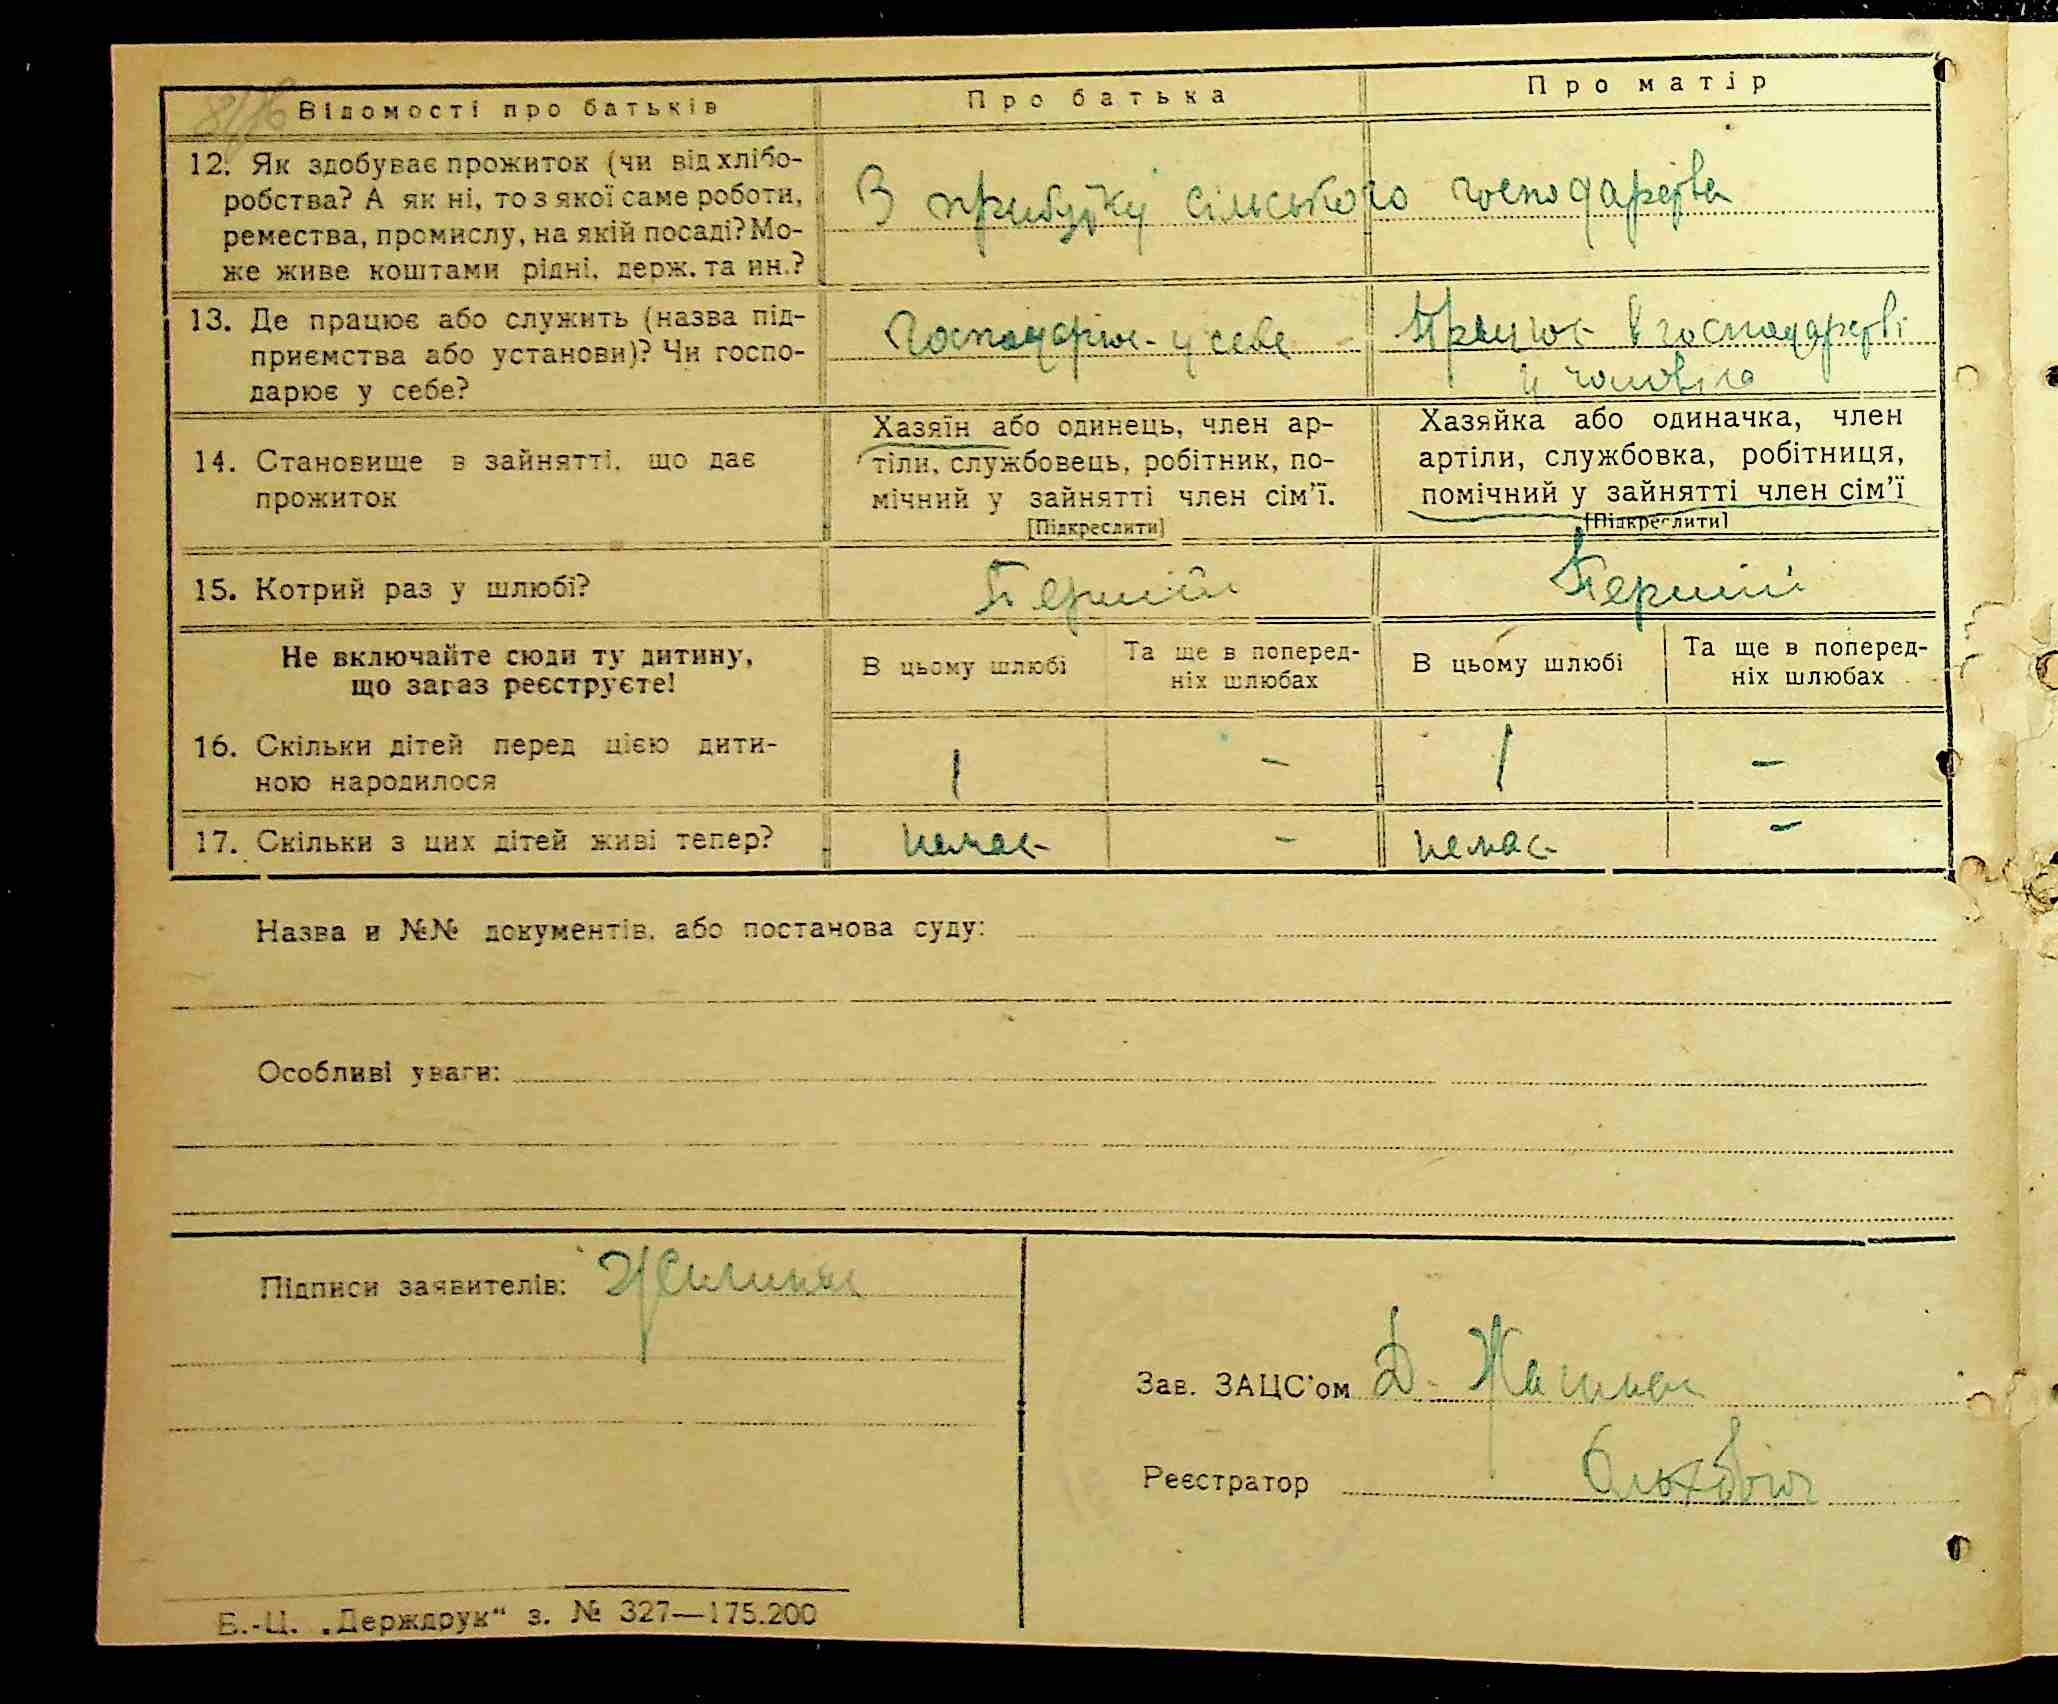 Відомості про батьків
Про батька
Про матір
12. Як здобуває прожиток (чи від хлібо-
робства? А як ні, то з якої саме роботи,
ремества, промислу, на якій посаді? Мо-
же живе коштами рідні, держ. та ин.?
В прибутку сільського господарства
13. Де працює або служить (назва під-
приємства або установи)? Чи госпо-
дарює у себе?
Господарює у себе
Працює в господарстві
у чоловіка
14. Становище в зайнятті, що дає
прожиток
Хазяїн або одинець, член ар-
тіли, службовець, робітник, по-
мічний у зайнятті член сім’ї.
[Підкреслити]
Хазяйка або одиначка, член
артіли, службовка, робітниця,
помічний у зайнятті член сім’ї
[Підкреслити]
15. Котрий раз у шлюбі?
Перший
Перший
Не включайте сюди ту дитину,
що зараз реєструєте!
В цьому шлюбі
Та ще в поперед-
ніх шлюбах
В цьому шлюбі
Та ще в поперед-
ніх шлюбах
16. Скільки дітей перед цією дити-
ною народилося
1 - 1 -
17. Скільки з цих дітей живі тепер?
немає - немає -
Назва и №№ документів, або постанова суду:
Особливі уваги:
Підписи заявителів:
Зав. ЗАЦС’ом Д.
Реєстратор
Б.-Ц. „Держдрук“ з. № 327—175.200